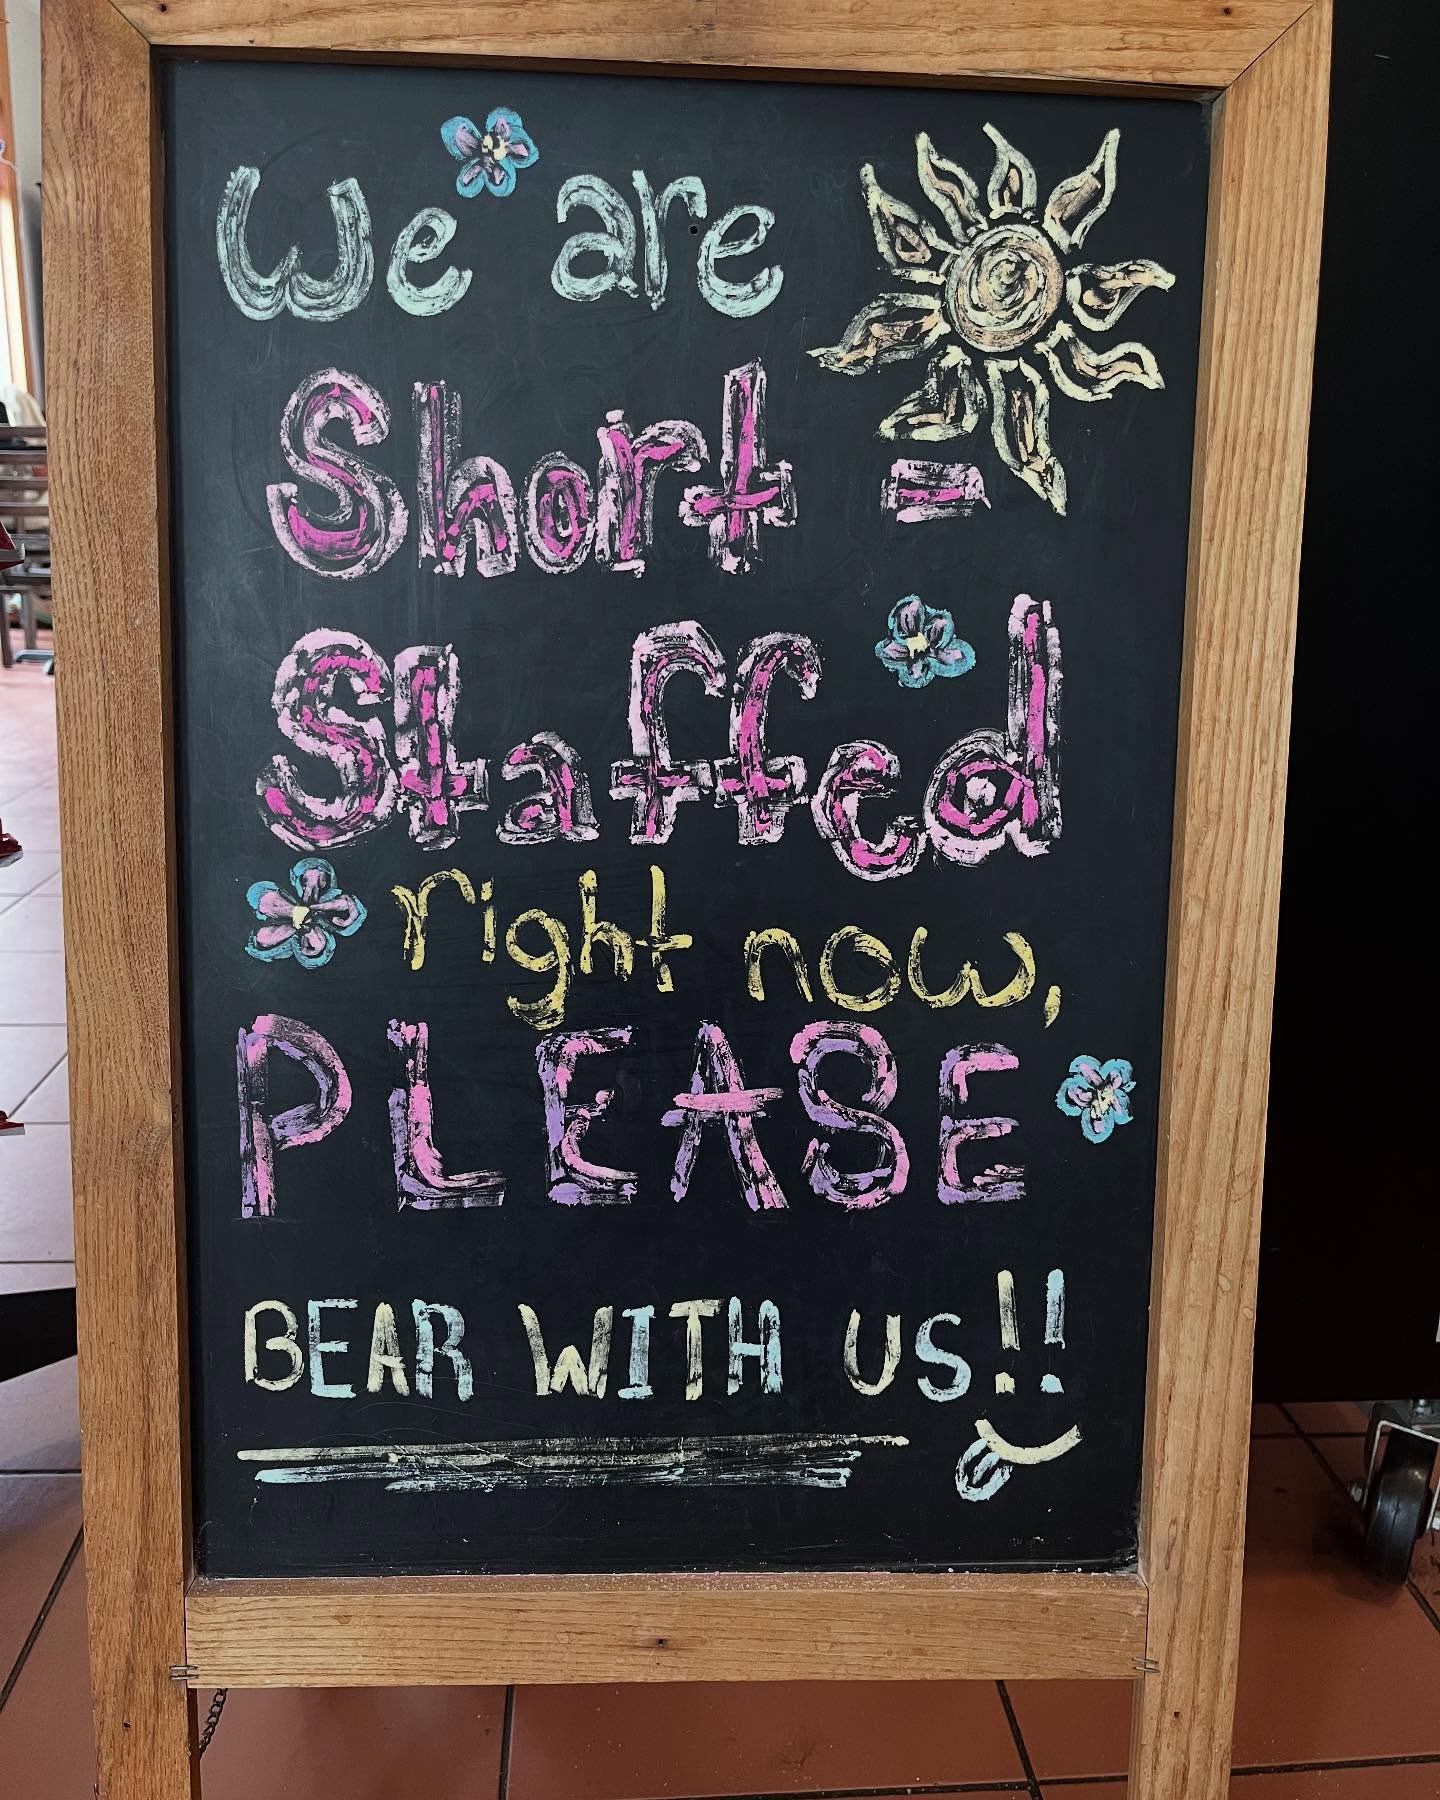 We are
Short -
Staffed
right now,
PLEASE
BEAR WITH US!!